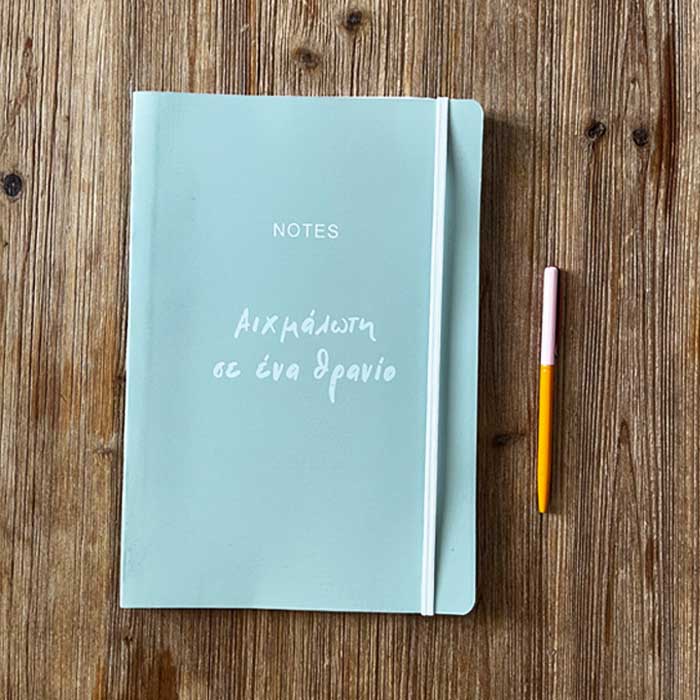 NOTES
Αιχμάλωτη
σε ένα θρανίο